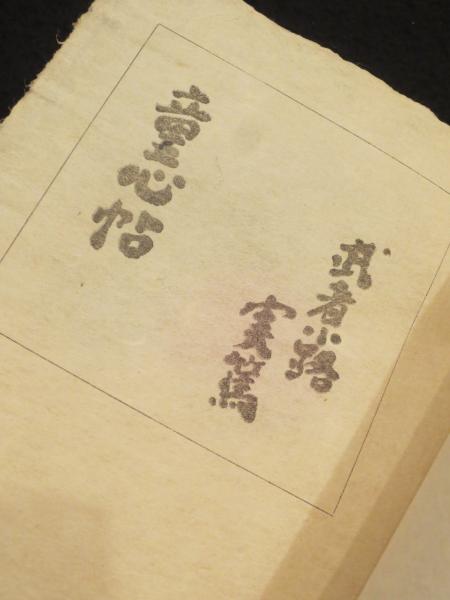 武者小路
実篤
童心帖